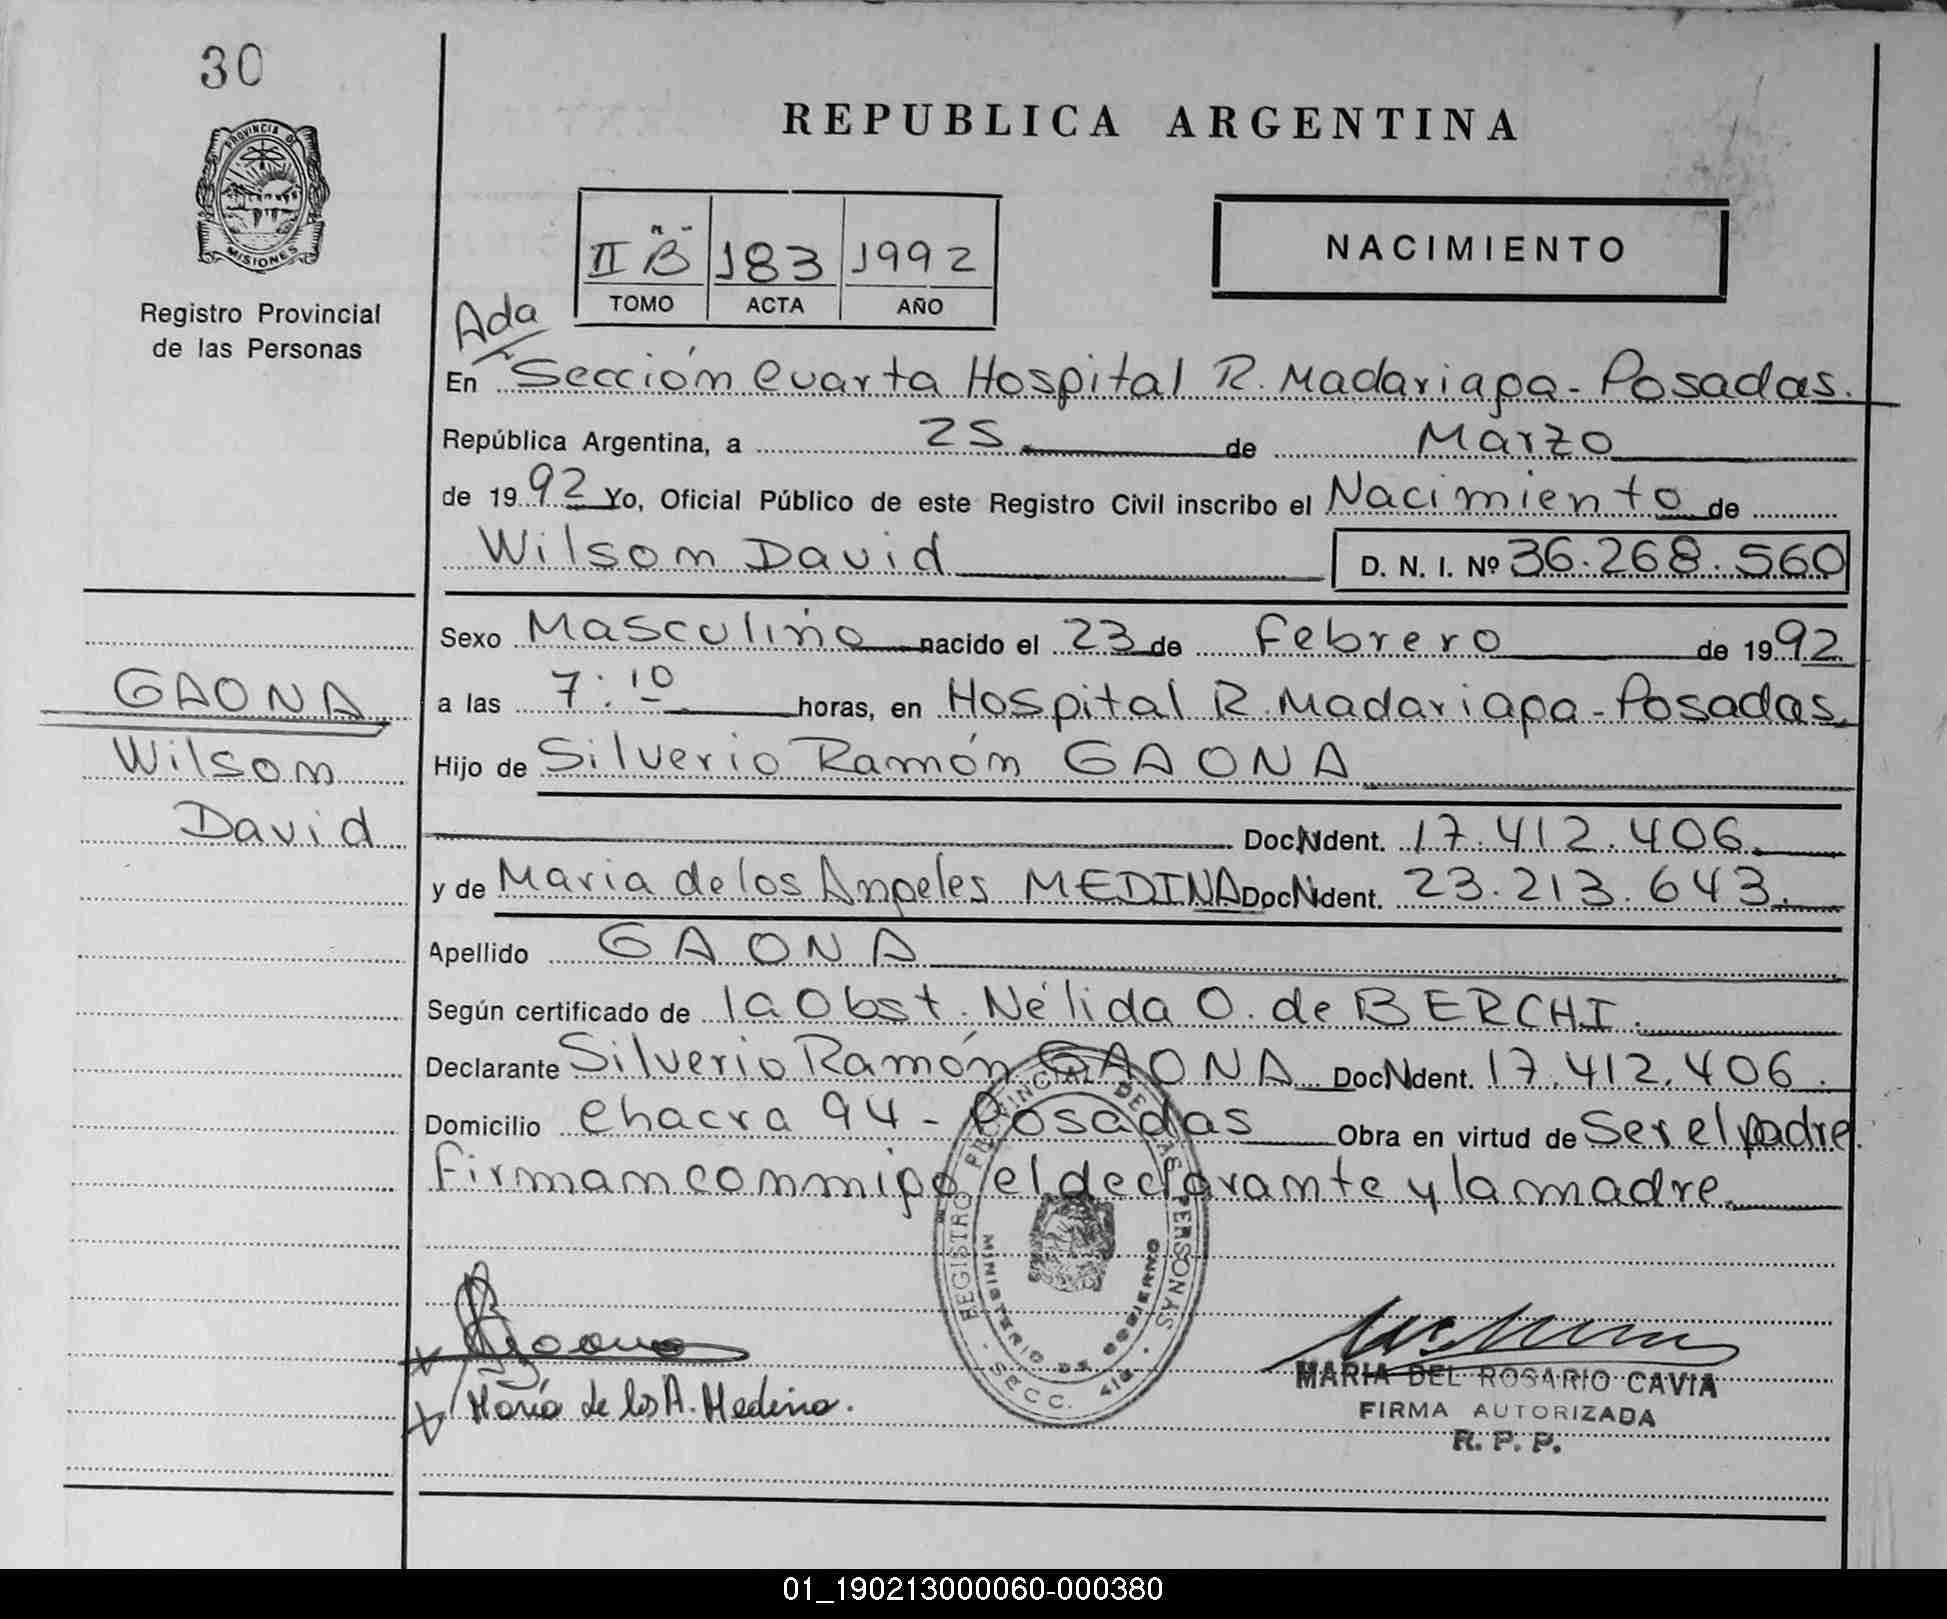 30
REPUBLICA ARGENTINA
PROVINCIA DE
MISIONES
Registro Provincial
de las Personas
II "B" 183 1992
TOMO ACTA AÑO
NACIMIENTO
Ada
En Sección Cuarta Hospital R. Madariaga - Posadas.
República Argentina, a 25 de Marzo
de 1992 Yo, Oficial Público de este Registro Civil inscribo el Nacimiento de
Wilson David D. N. I. Nº 36.268.560
Sexo Masculino nacido el 23 de Febrero de 1992
GAONA
a las 7:10 horas, en Hospital R. Madariaga - Posadas
Wilson
Hijo de Silverio Ramón GAONA
David
Doc. Ident. 17.412.406.
y de Maria de los Angeles MEDINA Doc. Ident. 23.213.643.
Apellido GAONA
Según certificado de la Obst. Nélida O. de BERCHI.
Declarante Silverio Ramón GAONA Doc. Ident. 17.412.406.
Domicilio Chacra 94 - Posadas Obra en virtud de Ser el padre.
Firman conmigo el declarante y la madre.
REGISTRO PROVINCIAL DE LAS PERSONAS
MINISTERIO DE GOBIERNO
SECC. 4ta.
Gaona
María de los A. Medina.
MARIA DEL ROSARIO CAVIA
FIRMA AUTORIZADA
R. P. P.
01_190213000060-000380